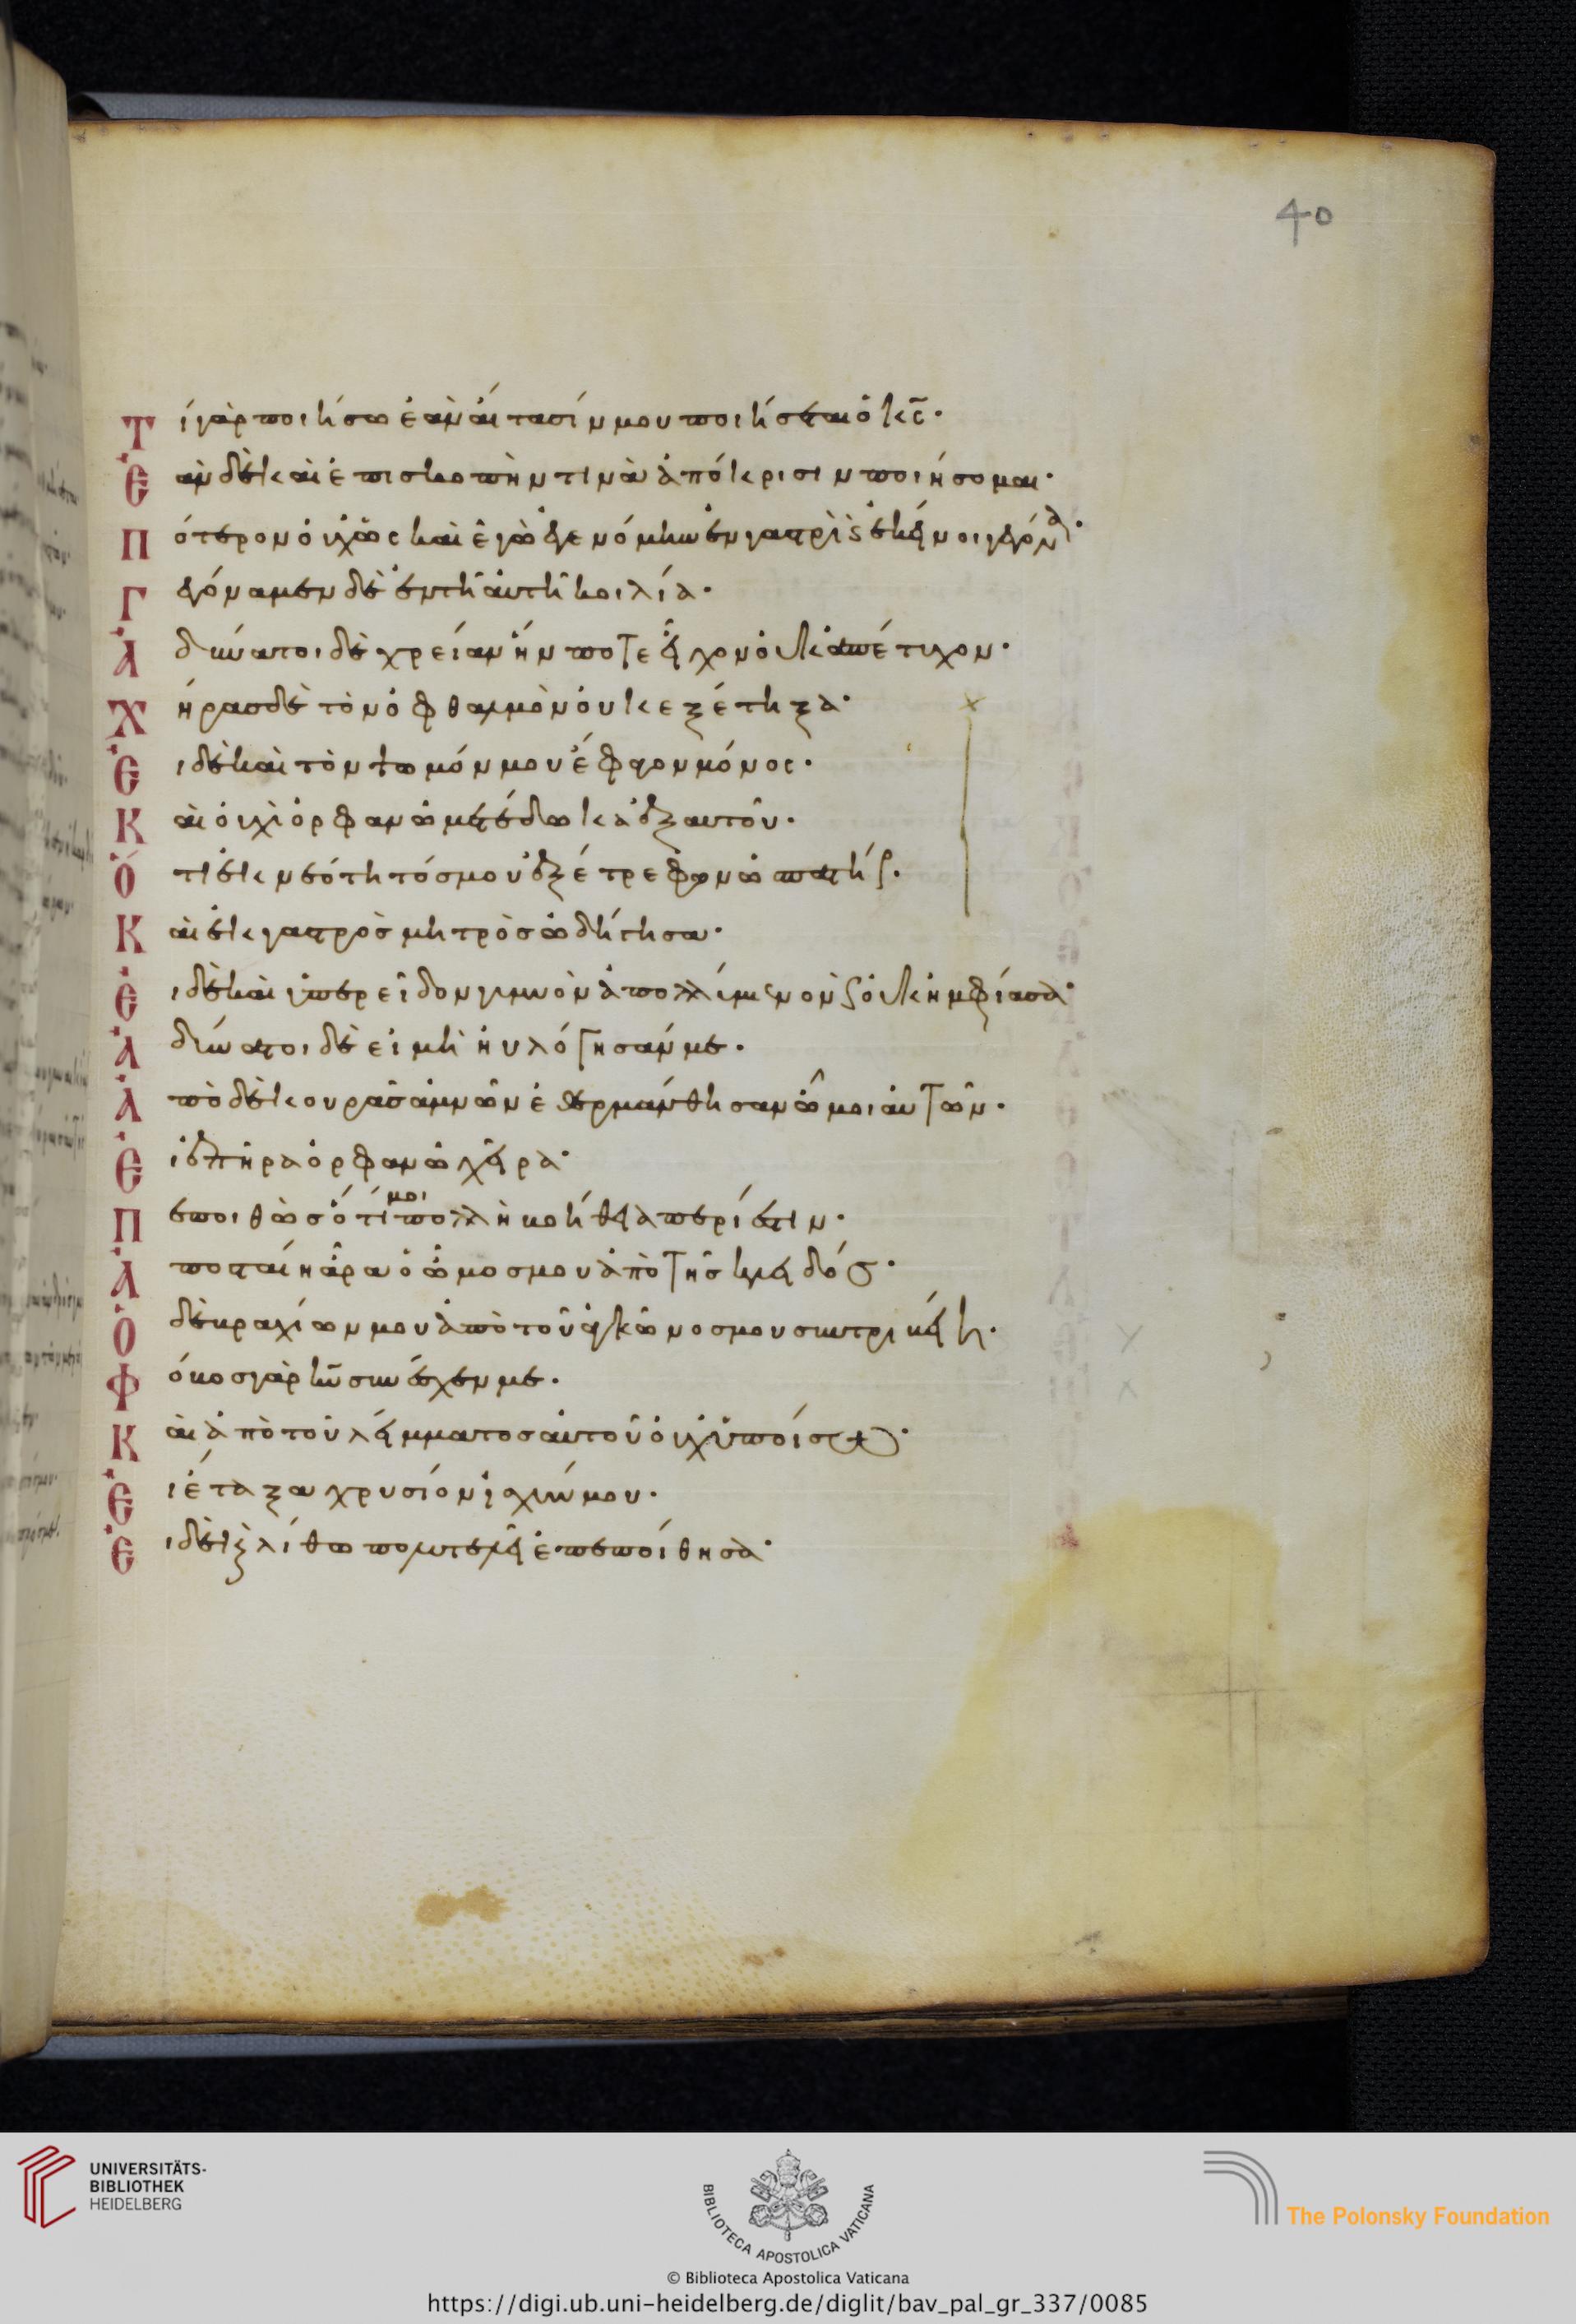 40
Τί γὰρ ποιήσω ἐὰν ἔτασίν μου ποιήσεται ὁ κς̄.
Ἐὰν δὲ καὶ ἐπισκοπὴν τινὰ ἀπόκρισιν ποιήσομαι.
Πότερον οὐχ ὡς καὶ ἐγὼ ἐγενόμην ἐν γαστρὶ καὶ ἐκεῖνοι γεγόνασι.
Γεγόναμεν δὲ ἐν τῆ αὐτῆ κοιλία.
Ἀδύνατοι δὲ χρείαν ἥν ποτε εἶχον οὐκ ἀπέτυχον.
Χήρας δὲ τὸν ὀφθαλμὸν οὐκ ἐξέτηξα.
Εἰ δὲ καὶ τὸν ψωμόν μου ἔφαγον μόνος.
Καὶ οὐχὶ ὀρφανῶ μετέδωκα ἐξ αυτοῦ.
Ὅτι ἐκ νεότητός μου ἐξέτρεφον ὡς πατήρ.
Καὶ ἐκ γαστρὸς μητρὸς ὡδήγησα.
Εἰ δὲ καὶ ὑπερεῖδον γυμνὸν ἀπολλύμενον καὶ οὐκ ἠμφίασα.
Ἀδύνατοι δὲ εἰ μὴ ηὐλόγησάν με.
Ἀπὸ δὲ κουρᾶς ἀμνῶν ἐθερμάνθησαν ὦμοι αὐτῶν.
Εἰ ἐπῆρα ὀρφανῶ χεῖρα.
Πεποιθὼς ὅτι μοι πολλὴ βοήθεια περίεστιν.
Ἀποσταίη ἄρα ὁ ὦμός μου ἀπὸ τῆς κλειδός.
Ὁ δὲ βραχίων μου ἀπὸ τοῦ ἀγκῶνος μου συντριβείη.
Φόβος γὰρ κῡ συνέσχεν με.
Καὶ ἀπὸ τοῦ λήμματος αὐτοῦ οὐχ ὑποίσω.
Εἰ ἔταξα χρυσίον ἰσχύν μου.
Εἰ δὲ καὶ λίθω πολυτελεῖ ἐπεποίθησα.
UNIVERSITÄTS-
BIBLIOTHEK
HEIDELBERG
BIBLIOTECA APOSTOLICA VATICANA
The Polonsky Foundation
© Biblioteca Apostolica Vaticana
https://digi.ub.uni-heidelberg.de/diglit/bav_pal_gr_337/0085